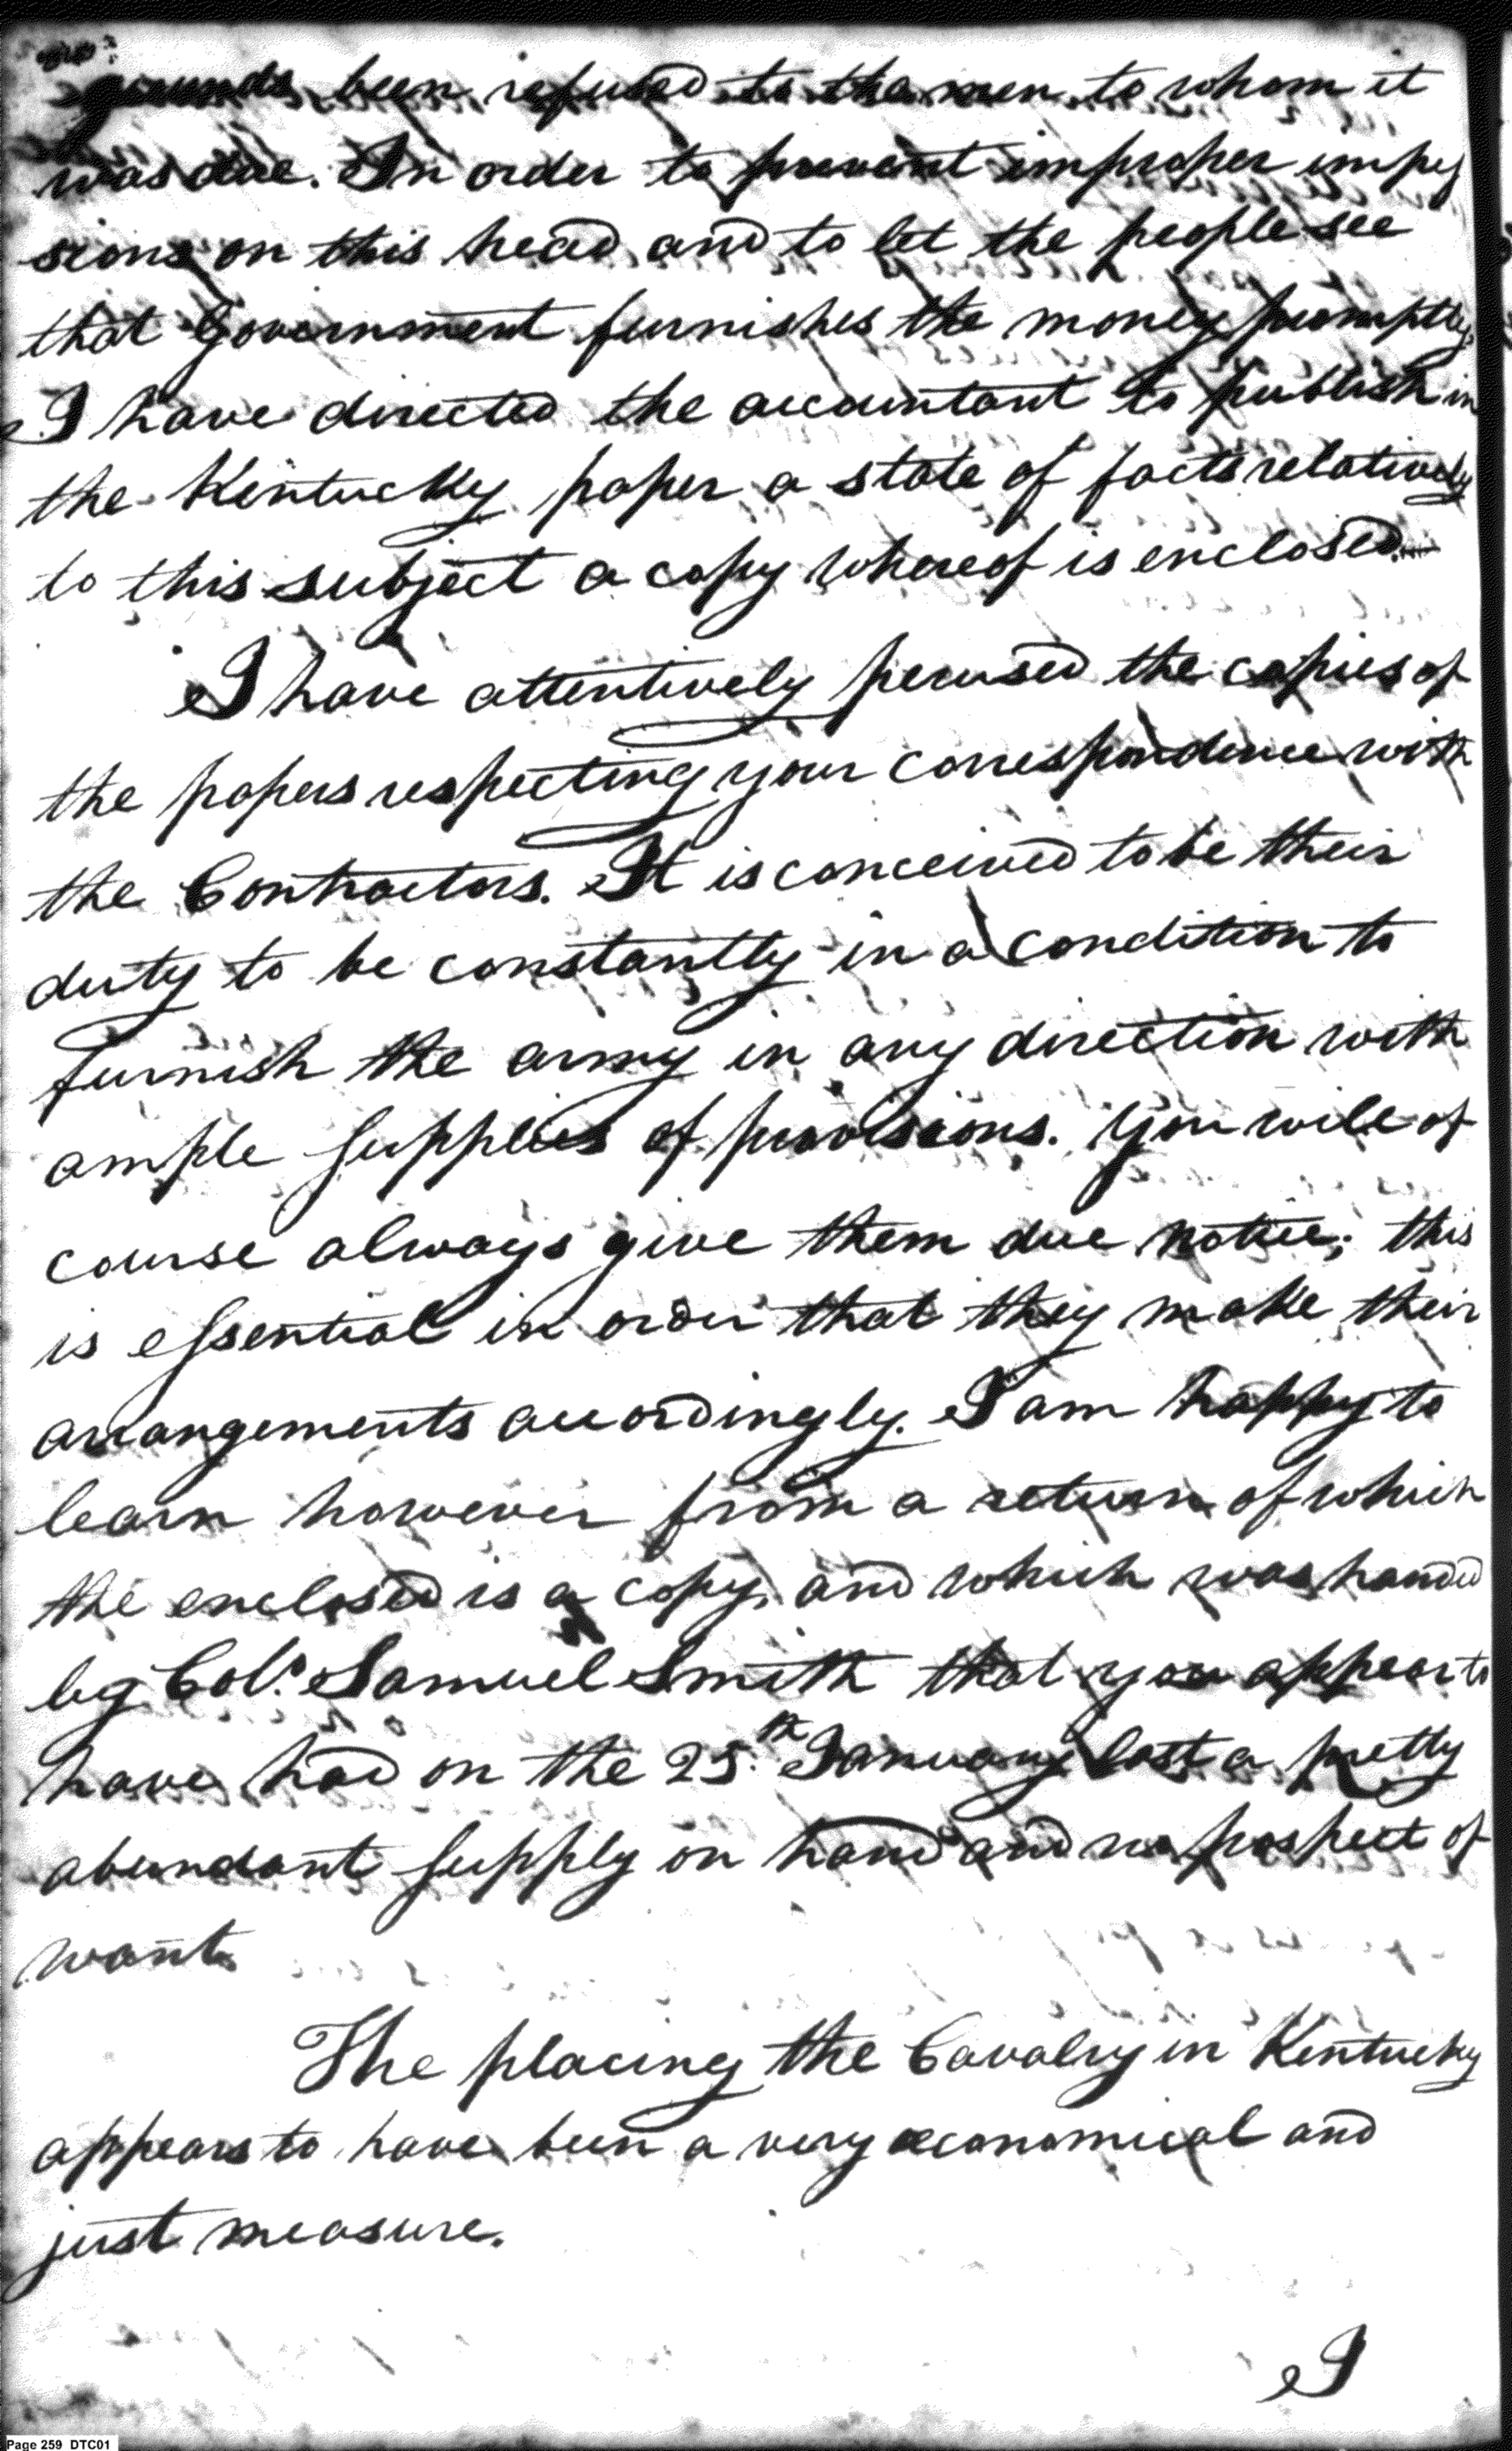 grounds been refused to the men to whom it
was due. In order to prevent improper impres
sions on this head and to let the people see
that Government furnishes the money promptly,
I have directed the accountant to publish in
the Kentucky paper a state of facts relatively
to this subject a copy whereof is enclosed.
I have attentively perused the copies of
the papers respecting your correspondence with
the Contractors. It is conceived to be their
duty to be constantly in a condition to
furnish the army in any direction with
ample supplies of provisions. You will of
course always give them due notice; this
is essential in order that they make their
arrangements accordingly. I am happy to
learn however from a return of which
the enclosed is a copy, and which was handed
by Col.º Samuel Smith that you appear to
have had on the 25.th January last a pretty
abundant supply on hand and no prospect of
want
The placing the Cavalry in Kentucky
appears to have been a very œconomical and
just measure.
I
Page 259 DTC01